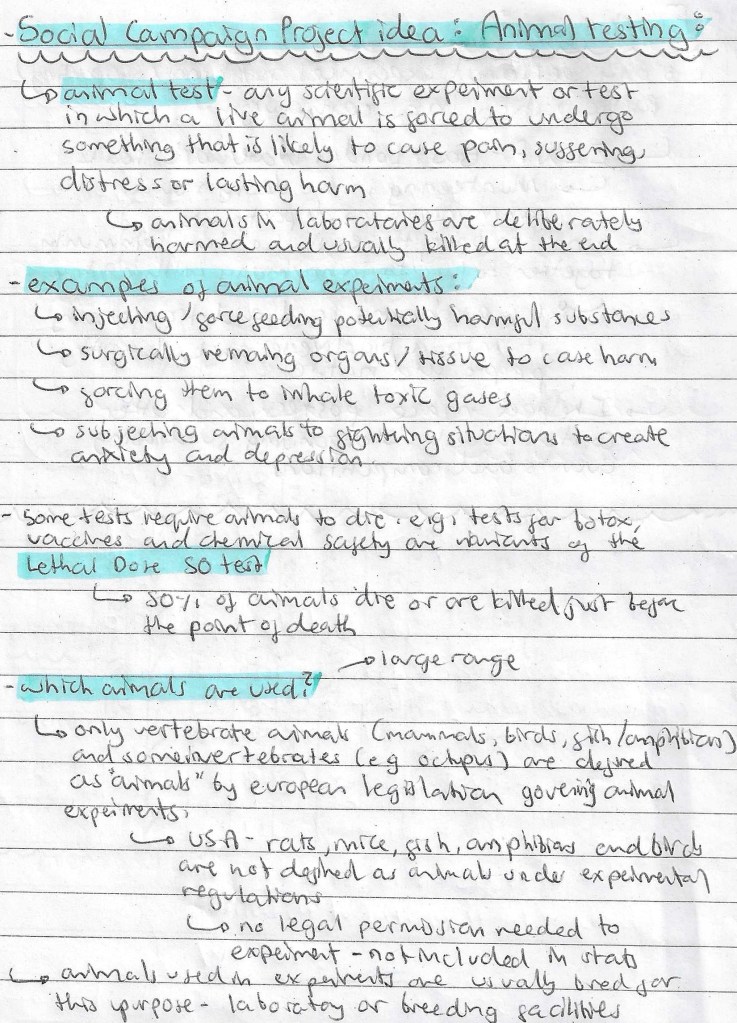 - Social Campaign Project idea: Animal testing:
↳ animal test - any scientific experiment or test
in which a live animal is forced to undergo
something that is likely to cause pain, suffering,
distress or lasting harm
↳ animals in laboratories are deliberately
harmed and usually killed at the end
- examples of animal experiments:
↳ injecting / force feeding potentially harmful substances
↳ surgically removing organs / tissue to case harm
↳ forcing them to inhale toxic gases
↳ subjecting animals to frightning situations to create
anxiety and depression
- Some tests require animals to die. e.g, tests for botox,
vaccines and chemical safety are variants of the
Lethal Dose 50 test
↳ 50% of animals die or are killed just before
the point of death
→ large range
- which animals are used?
↳ only vertebrate animals (mammals, birds, fish/amphibians)
and some invertebrates (e.g octupus) are defined
as "animals" by european legislation govering animal
experiments.
↳ USA - rats, mice, fish, amphibians and birds
are not defined as animals under experimental
regulations
↳ no legal permission needed to
experiment - not included in stats
↳ animals used in experiments are usually bred for
this purpose - laboratory or breeding facilities